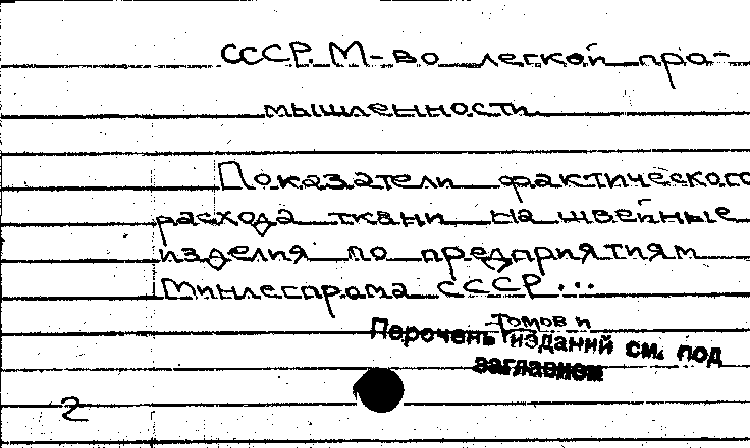 СССР. М-во легкой про-
мышленности
Показатели фактического
расхода ткани на швейные
изделия по предприятиям
Минлегпрома СССР...
томов и
Перечень изданий см. под
заглавием
2